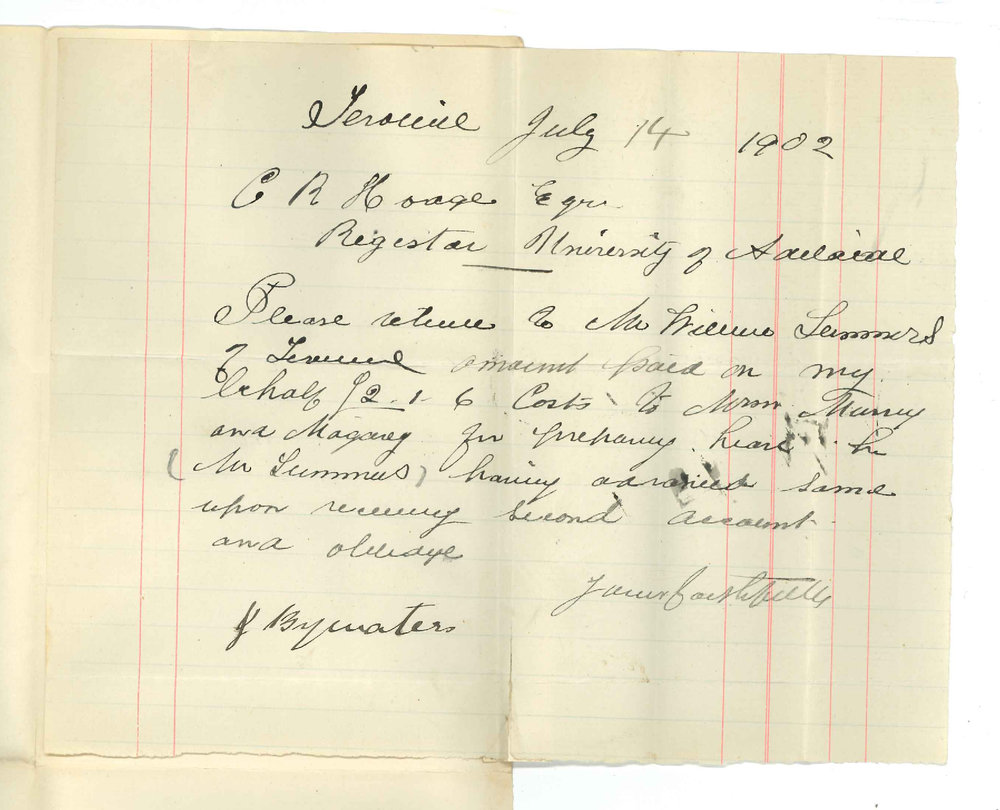 Terowie July 14 1902
C R Hodge Eqre
Registar University of Adelaide
Please return to Mr William Summers
of Terowie amount paid on my
behalf £2-1-6 Costs to Messrs Murray
and Magarey for preparing lease he
(Mr Summers) having advanced same
upon receiving second account
and obliage
Yours faithfully
J Bywaters